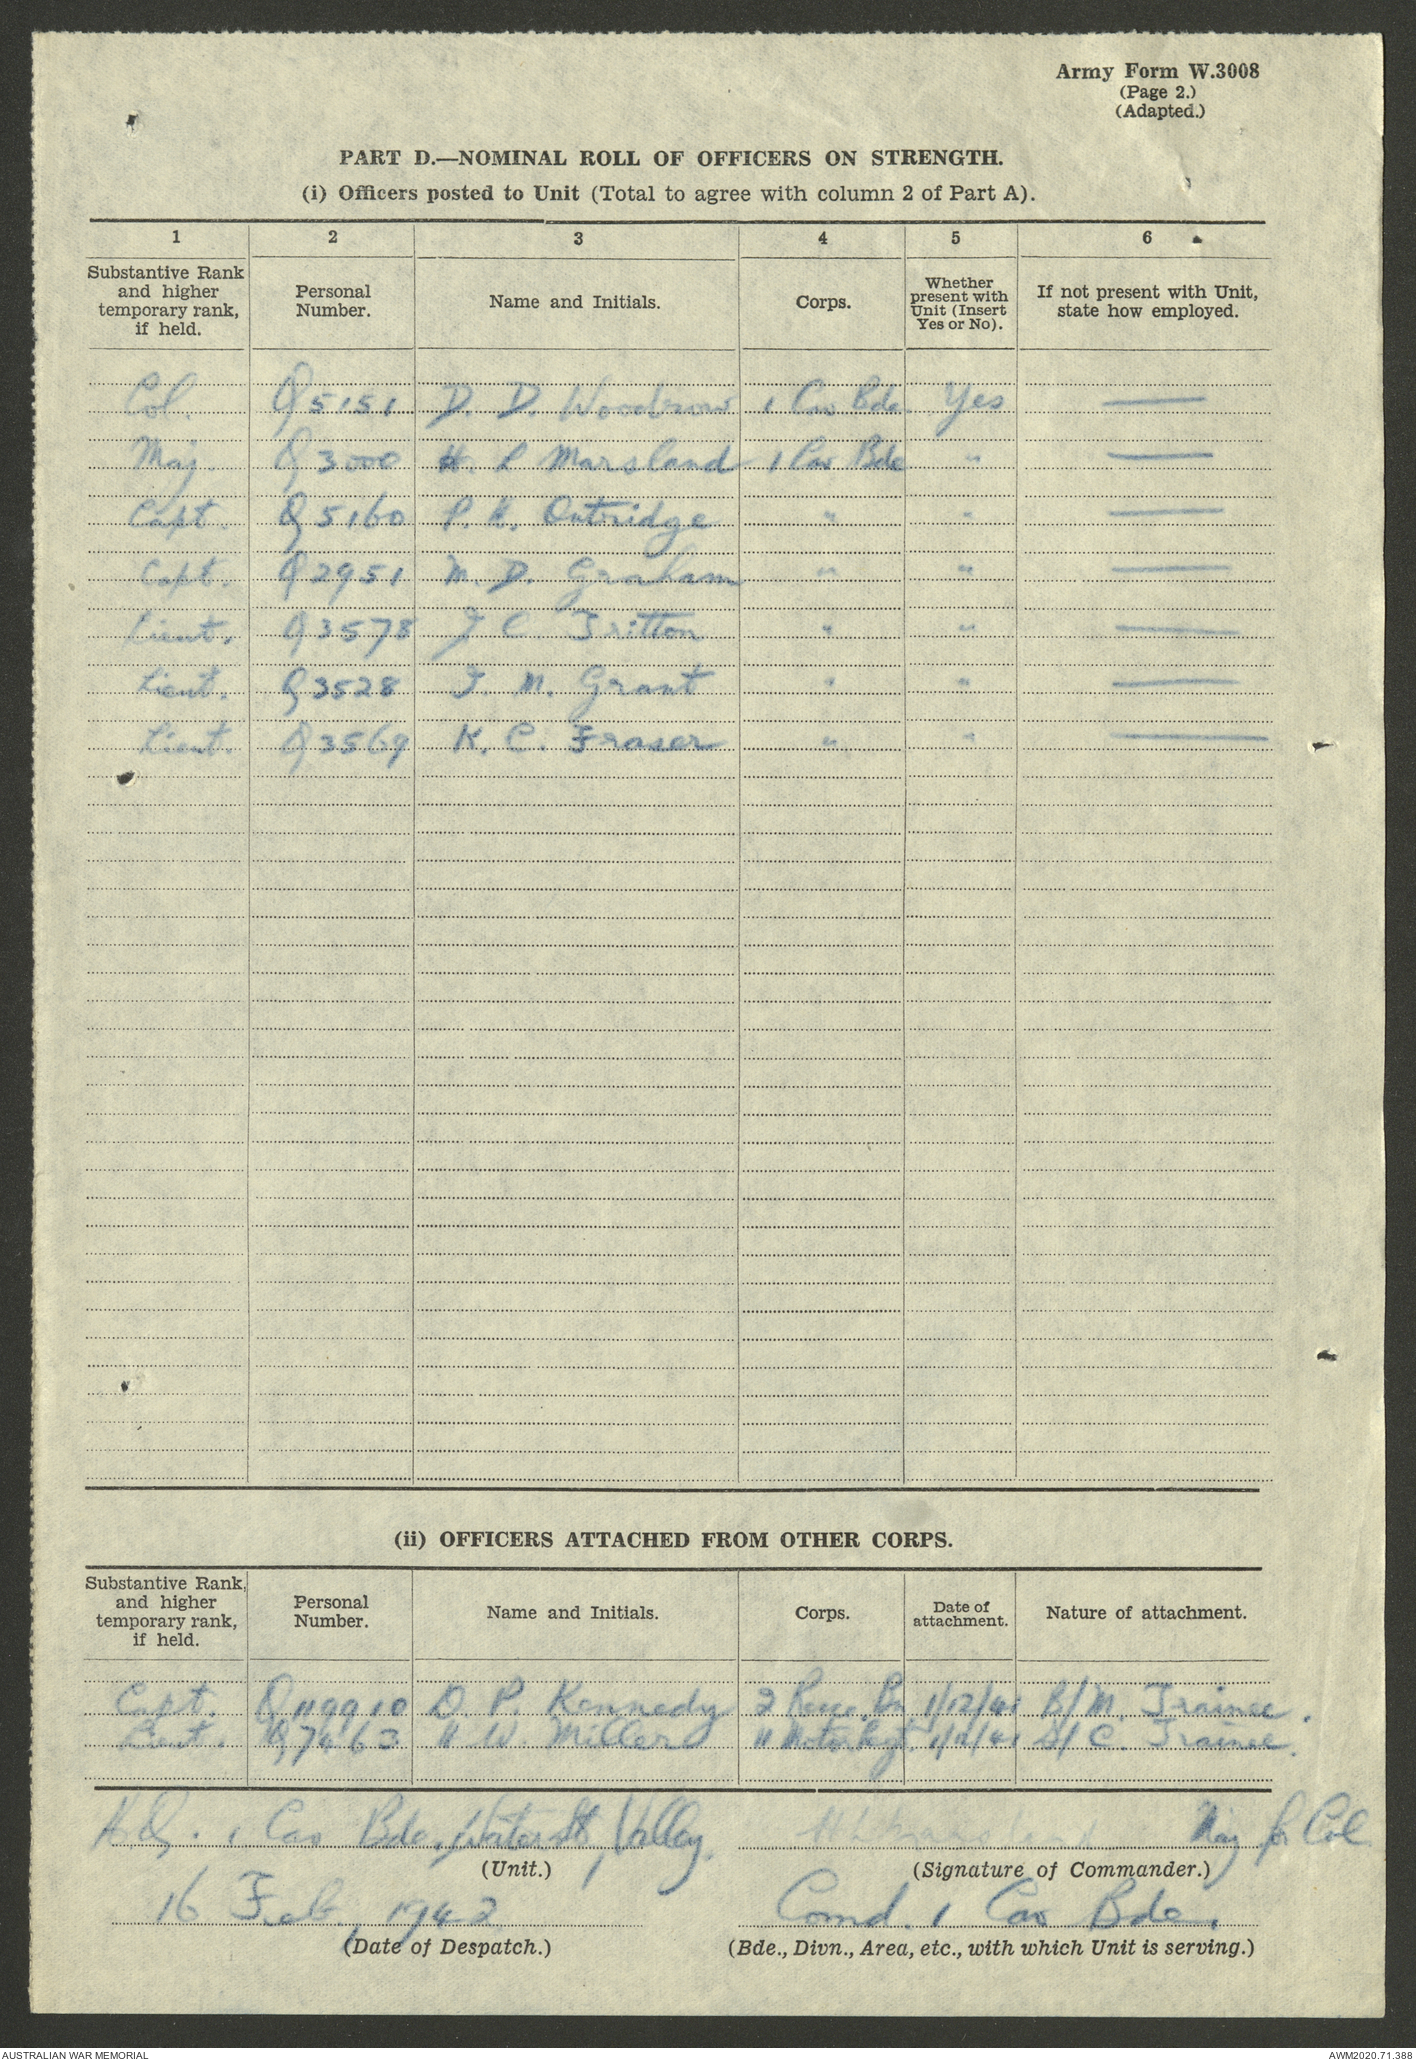 Army Form W.3008
(Page 2.)
(Adapted.)
PART D.—NOMINAL ROLL OF OFFICERS ON STRENGTH.
(i) Officers posted to Unit (Total to agree with column 2 of Part A).
1 2 3 4 5 6
Substantive Rank and higher temporary rank, if held. Personal Number. Name and Initials. Corps. Whether present with Unit (Insert Yes or No). If not present with Unit, state how employed.
Col. Q5151 D. D. Woodrow 1 Cav Bde. Yes —
Maj. Q3000 H. L Marsland 1 Cav Bde " —
Capt. Q5160 P. K. Outridge " " —
Capt. Q2951 M. D. Graham " " —
Lieut. Q3578 J C Tritton " " —
Lieut. Q3528 J. M. Grant " " —
Lieut. Q3569 K. C. Fraser " " —
(ii) OFFICERS ATTACHED FROM OTHER CORPS.
Substantive Rank, and higher temporary rank, if held. Personal Number. Name and Initials. Corps. Date of attachment. Nature of attachment.
Capt. Q119910 D. P. Kennedy 2 Recce. Bn 1/12/41 B/M. Trainee.
Lieut. Q7463 W. Miller 11 Motor Regt. S/C. Trainee.
H.Q. 1 Cav Bde, Water St, Valley. Maj for Col
(Unit.) (Signature of Commander.)
16 Feb, 1942 Comd. 1 Cav Bde.
(Date of Despatch.) (Bde., Divn., Area, etc., with which Unit is serving.)
AUSTRALIAN WAR MEMORIAL AWM2020.71.388